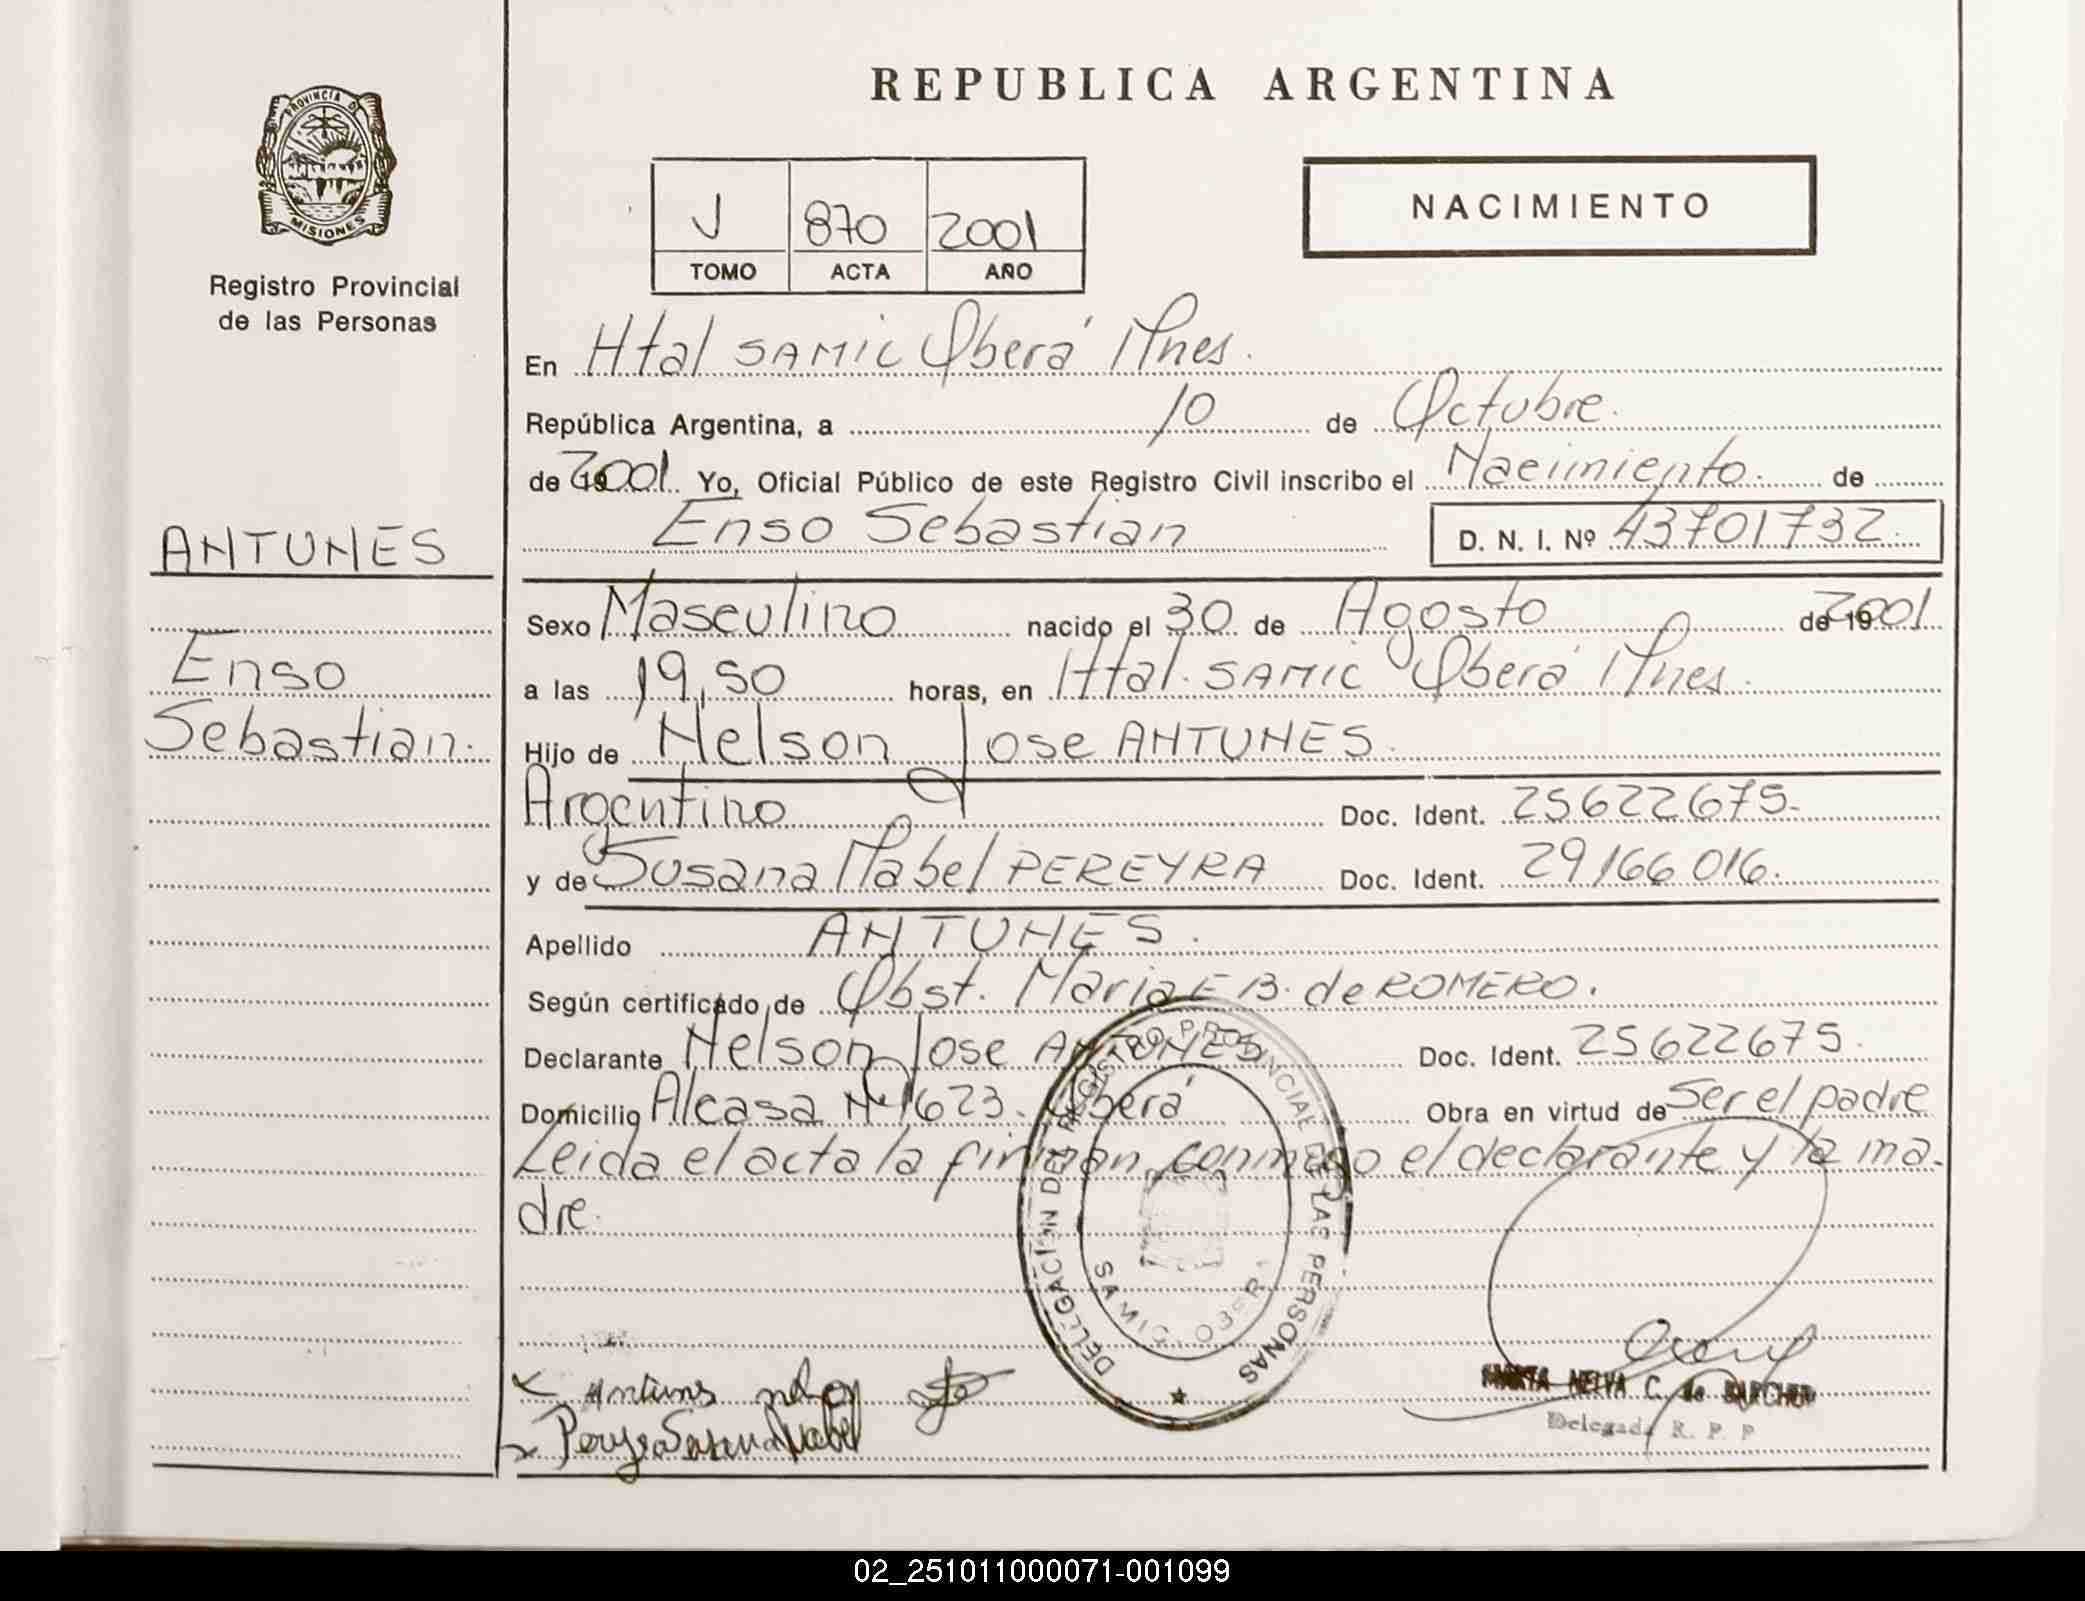 PROVINCIA DE
MISIONES
Registro Provincial
de las Personas
ANTUNES
Enso
Sebastian.
REPUBLICA ARGENTINA
J 870 2001
TOMO ACTA AÑO
NACIMIENTO
En Htal SAMIC Oberá Mnes.
República Argentina, a 10 de Octubre.
de 2001 Yo, Oficial Público de este Registro Civil inscribo el Nacimiento. de
Enso Sebastian D. N. I. Nº 43701732.
Sexo Masculino nacido el 30 de Agosto de 2001
a las 19,50 horas, en Htal. SAMIC Oberá Mnes.
Hijo de Nelson Jose ANTUNES.
Argentino Doc. Ident. 25622675.
y de Susana Mabel PEREYRA Doc. Ident. 29166016.
Apellido ANTUNES.
Según certificado de Obst. Maria E B. de ROMERO.
Declarante Nelson Jose ANTUNES Doc. Ident. 25622675.
Domicilio Alcasa Nº 1623. Oberá Obra en virtud de Ser el padre
Leida el acta la firman conmigo el declarante y la ma-
dre.
DELEGACION DEL REGISTRO PROVINCIAL DE LAS PERSONAS
SAMIC OBERA
Antunes
Pereyra Susana Mabel
MARTA NELVA C. de
Delegada R. P. P
02_251011000071-001099